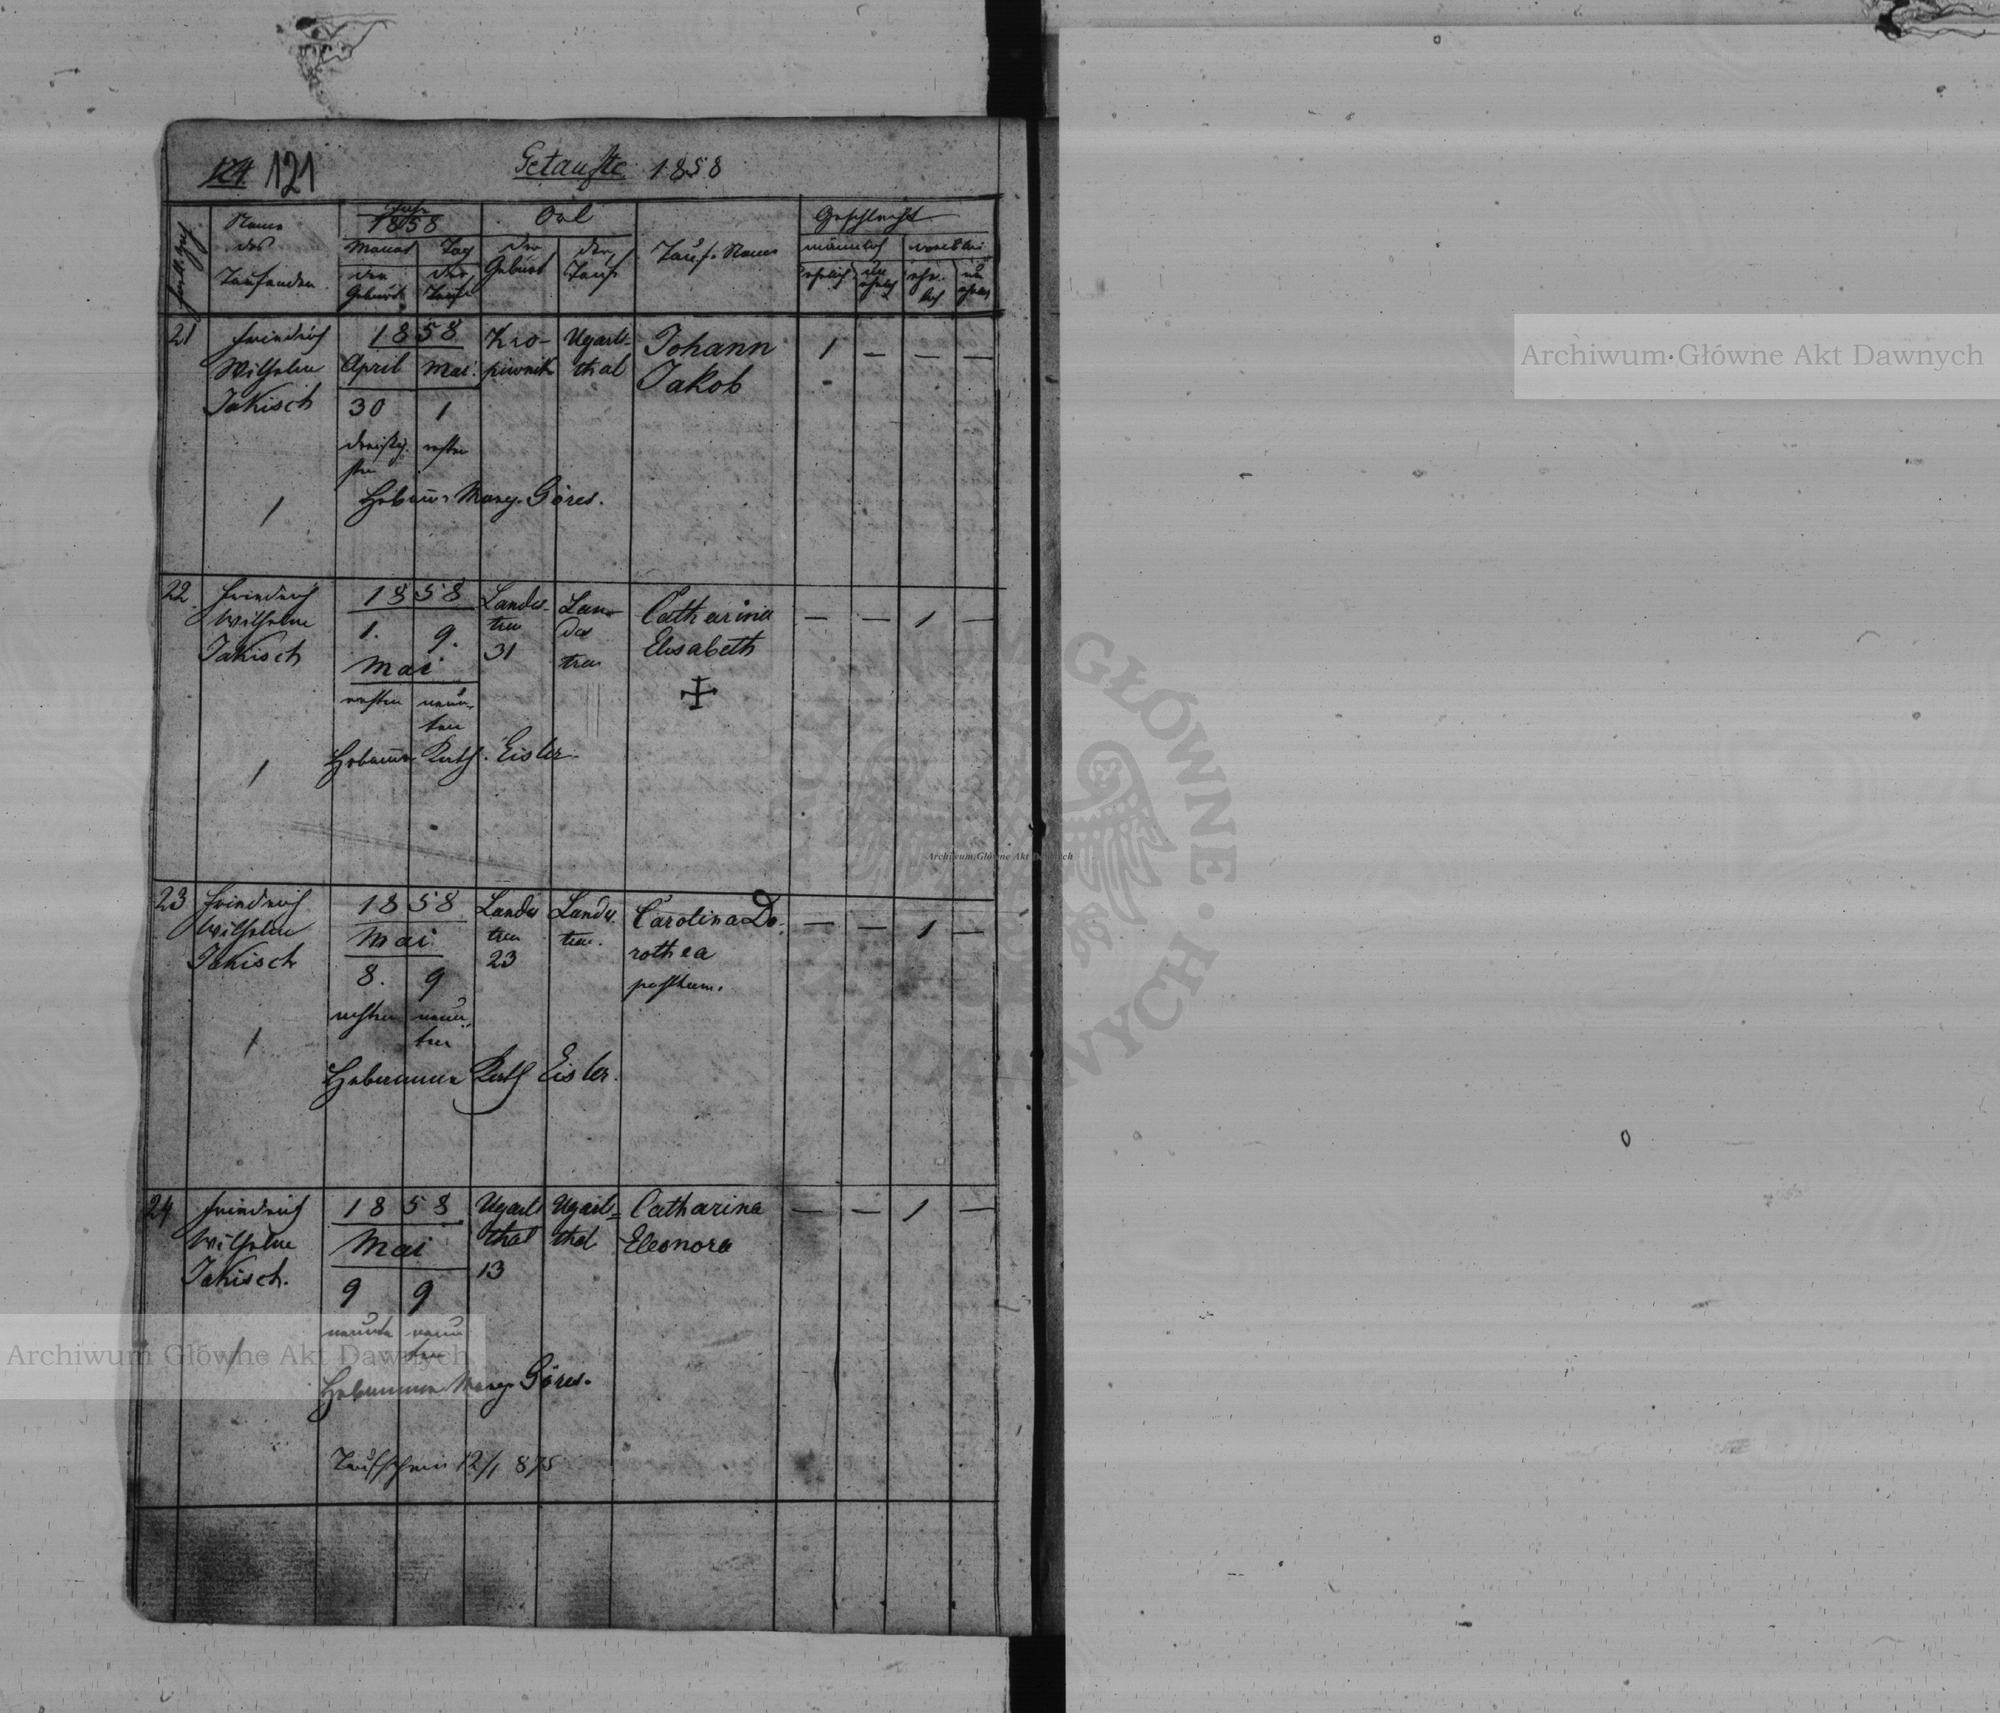 124 121
Getaufte 1858
Name des Taufenden
Jahr 1858
Monat Tag
der Geburt
der Taufe
Ort
der Geburt
der Taufe
Tauf-Name
Geschlecht
männlich
ehelich
un ehelich
ehe- lich
un ehelich
21
Friedrich
Wilhelm
Jakisch
1858
April Mai
30 1
dreißig- ersten
sten
Kro-
piwnik
Ugarts-
thal
Johann
Jakob
1 — — —
1
Hebamme Marg. Göres.
22
Friedrich
Wilhelm
Jakisch
1858
1. 9.
Mai
ersten neun-
ten
Landes-
treu
31
Lan-
des
treu
Catharina
Elisabeth
— — 1 —
1
Hebamme Kath. Eisler.
23
Friedrich
Wilhelm
Jakisch
1858
Mai
8. 9
neun-
ten
Landes
treu
23
Landes-
treu.
Carolina Do-
rothea
posthum.
— — 1 —
1
Hebamme Kath Eisler.
24
Friedrich
Wilhelm
Jakisch.
1858
Mai
9 9
neunten neun
ten
Ugarts
thal
13
Ugarts=
thal
Catharina
Eleonora
— — 1 —
1
Hebamme Marg. Göres.
Taufschein 12/1 875
Archiwum Główne Akt Dawnych
Archiwum Główne Akt Dawnych
Archiwum Główne Akt Dawnych